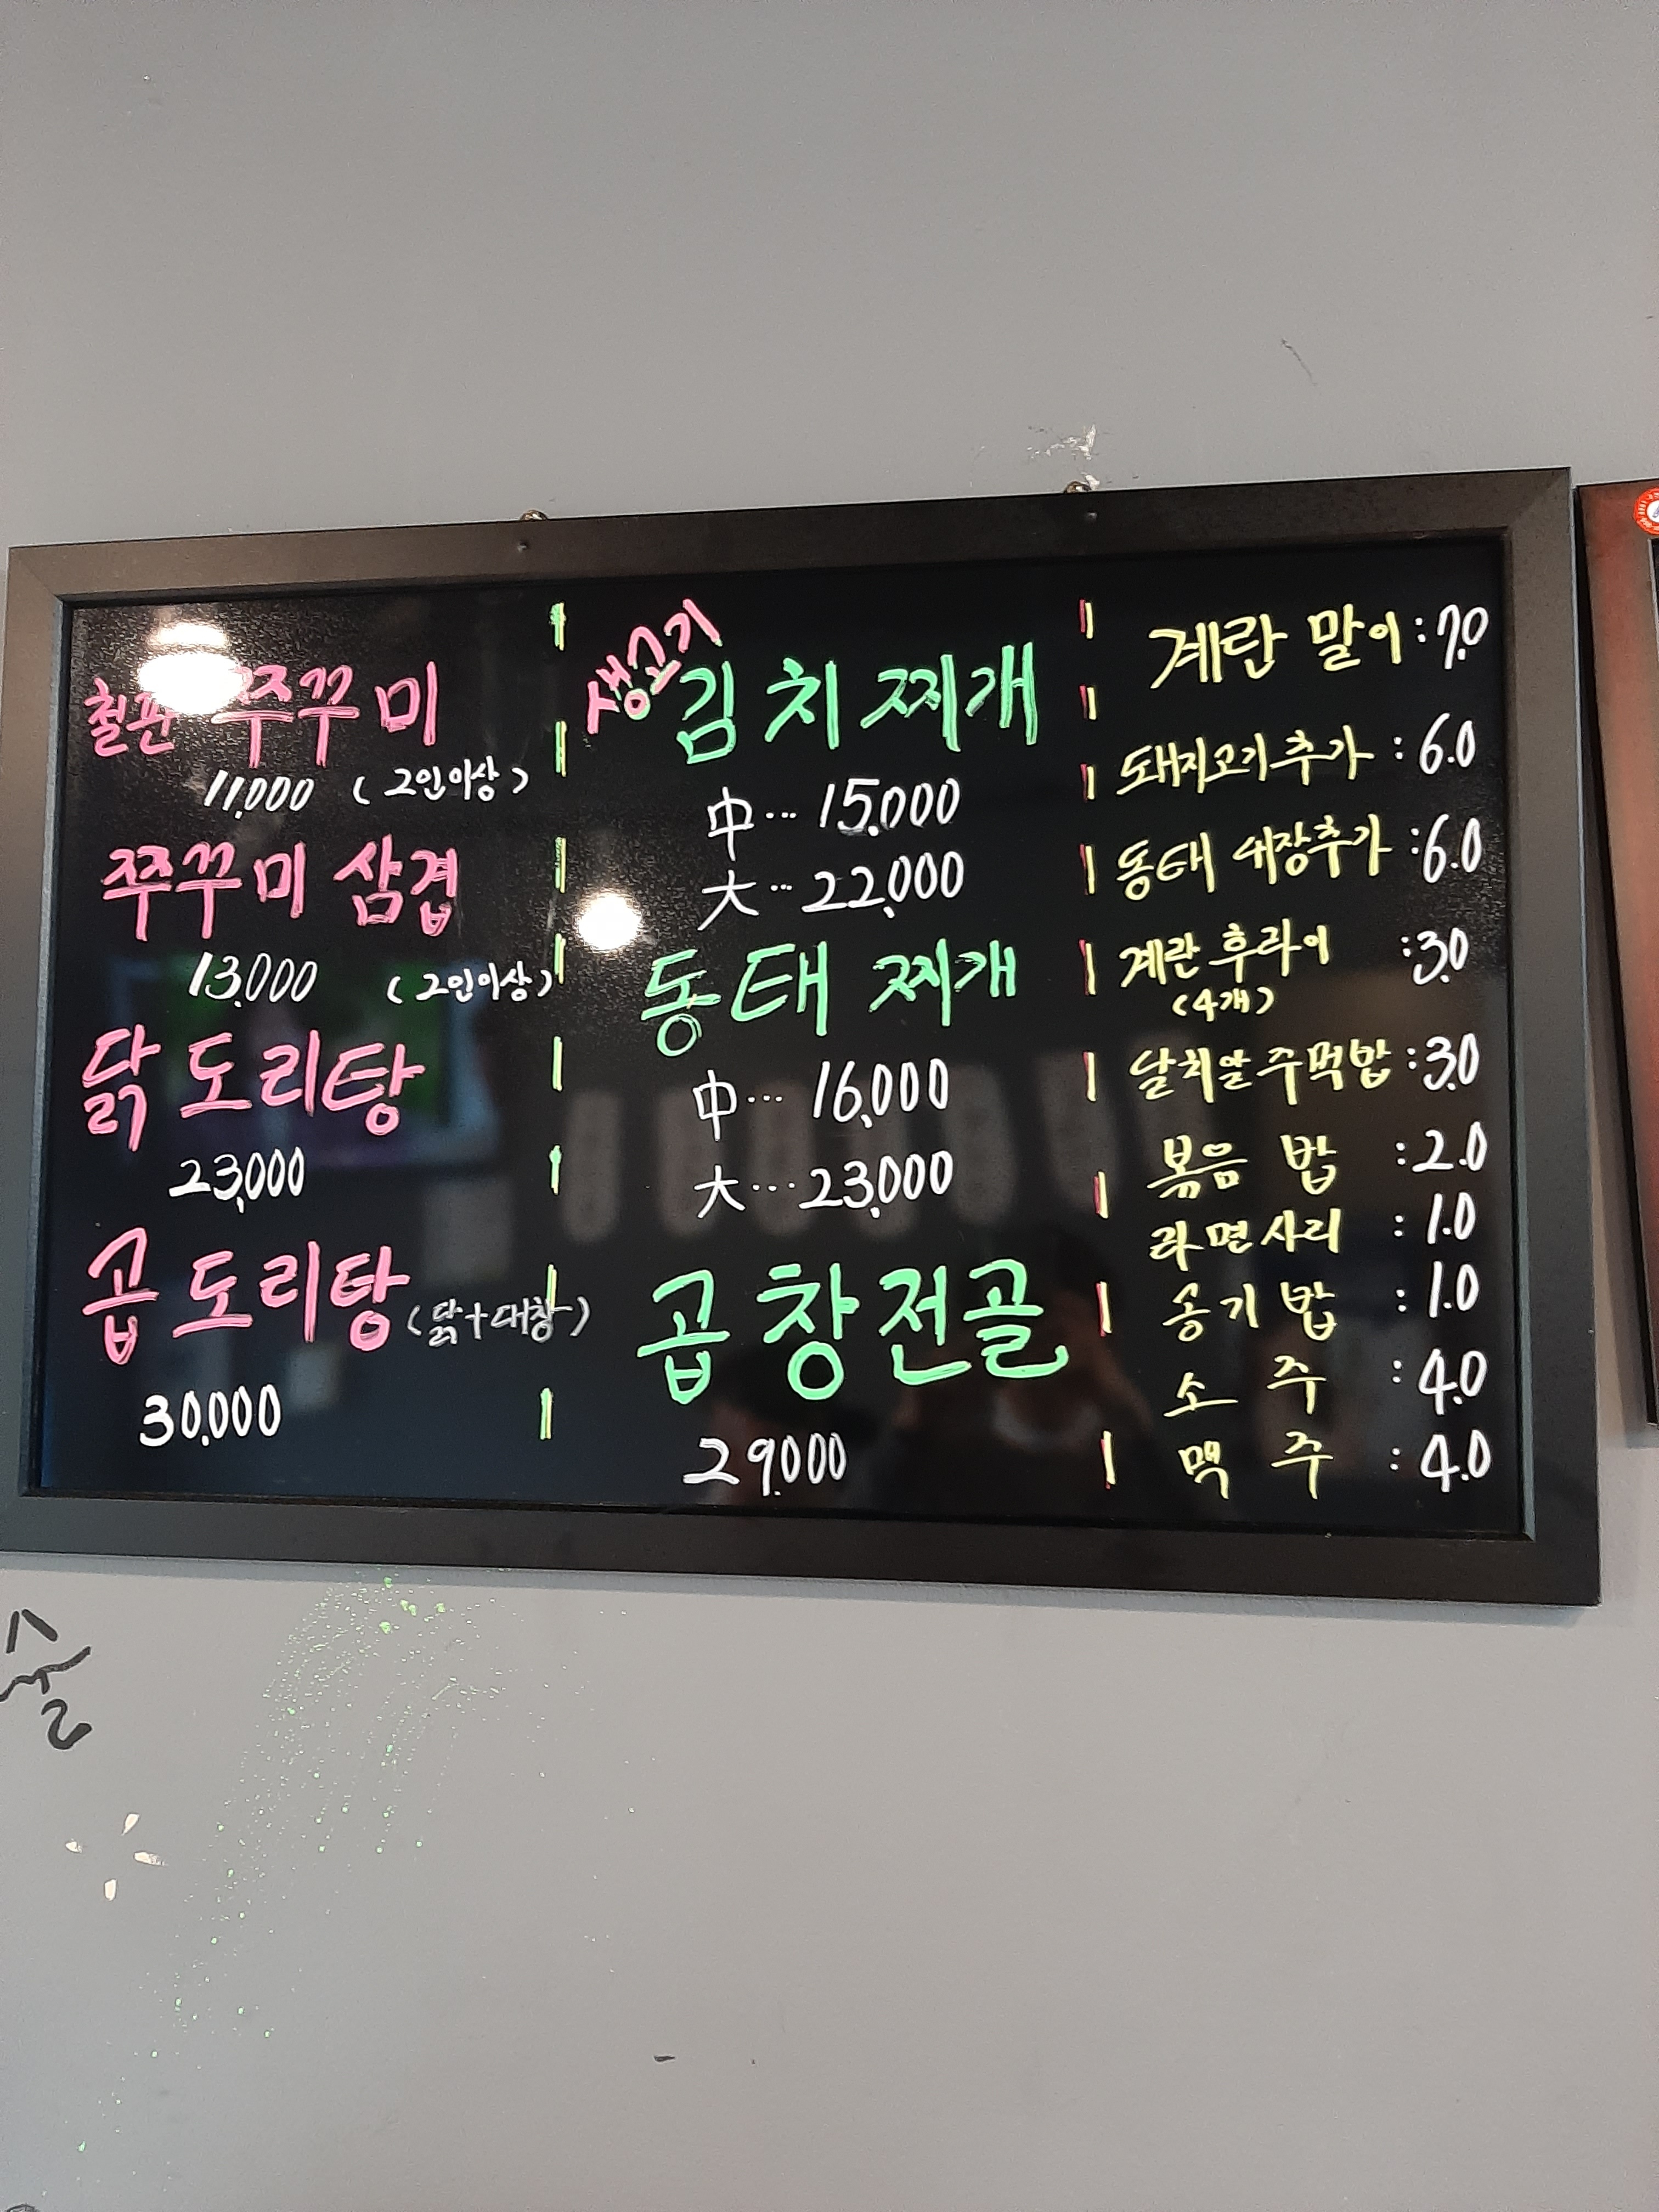 철판 쭈꾸미
11,000 (2인이상)
쭈꾸미 삼겹
13,000 (2인이상)
닭도리탕
23,000
곱도리탕 (닭+대창)
30,000
생고기 김치찌개
中... 15,000
大... 22,000
동태 찌개
中... 16,000
大... 23,000
곱창전골
29,000
계란 말이 : 7.0
돼지고기추가 : 6.0
동태 내장추가 : 6.0
계란 후라이 : 3.0
(4개)
날치알 주먹밥 : 3.0
볶음 밥 : 2.0
라면사리 : 1.0
공기 밥 : 1.0
소 주 : 4.0
맥 주 : 4.0
술